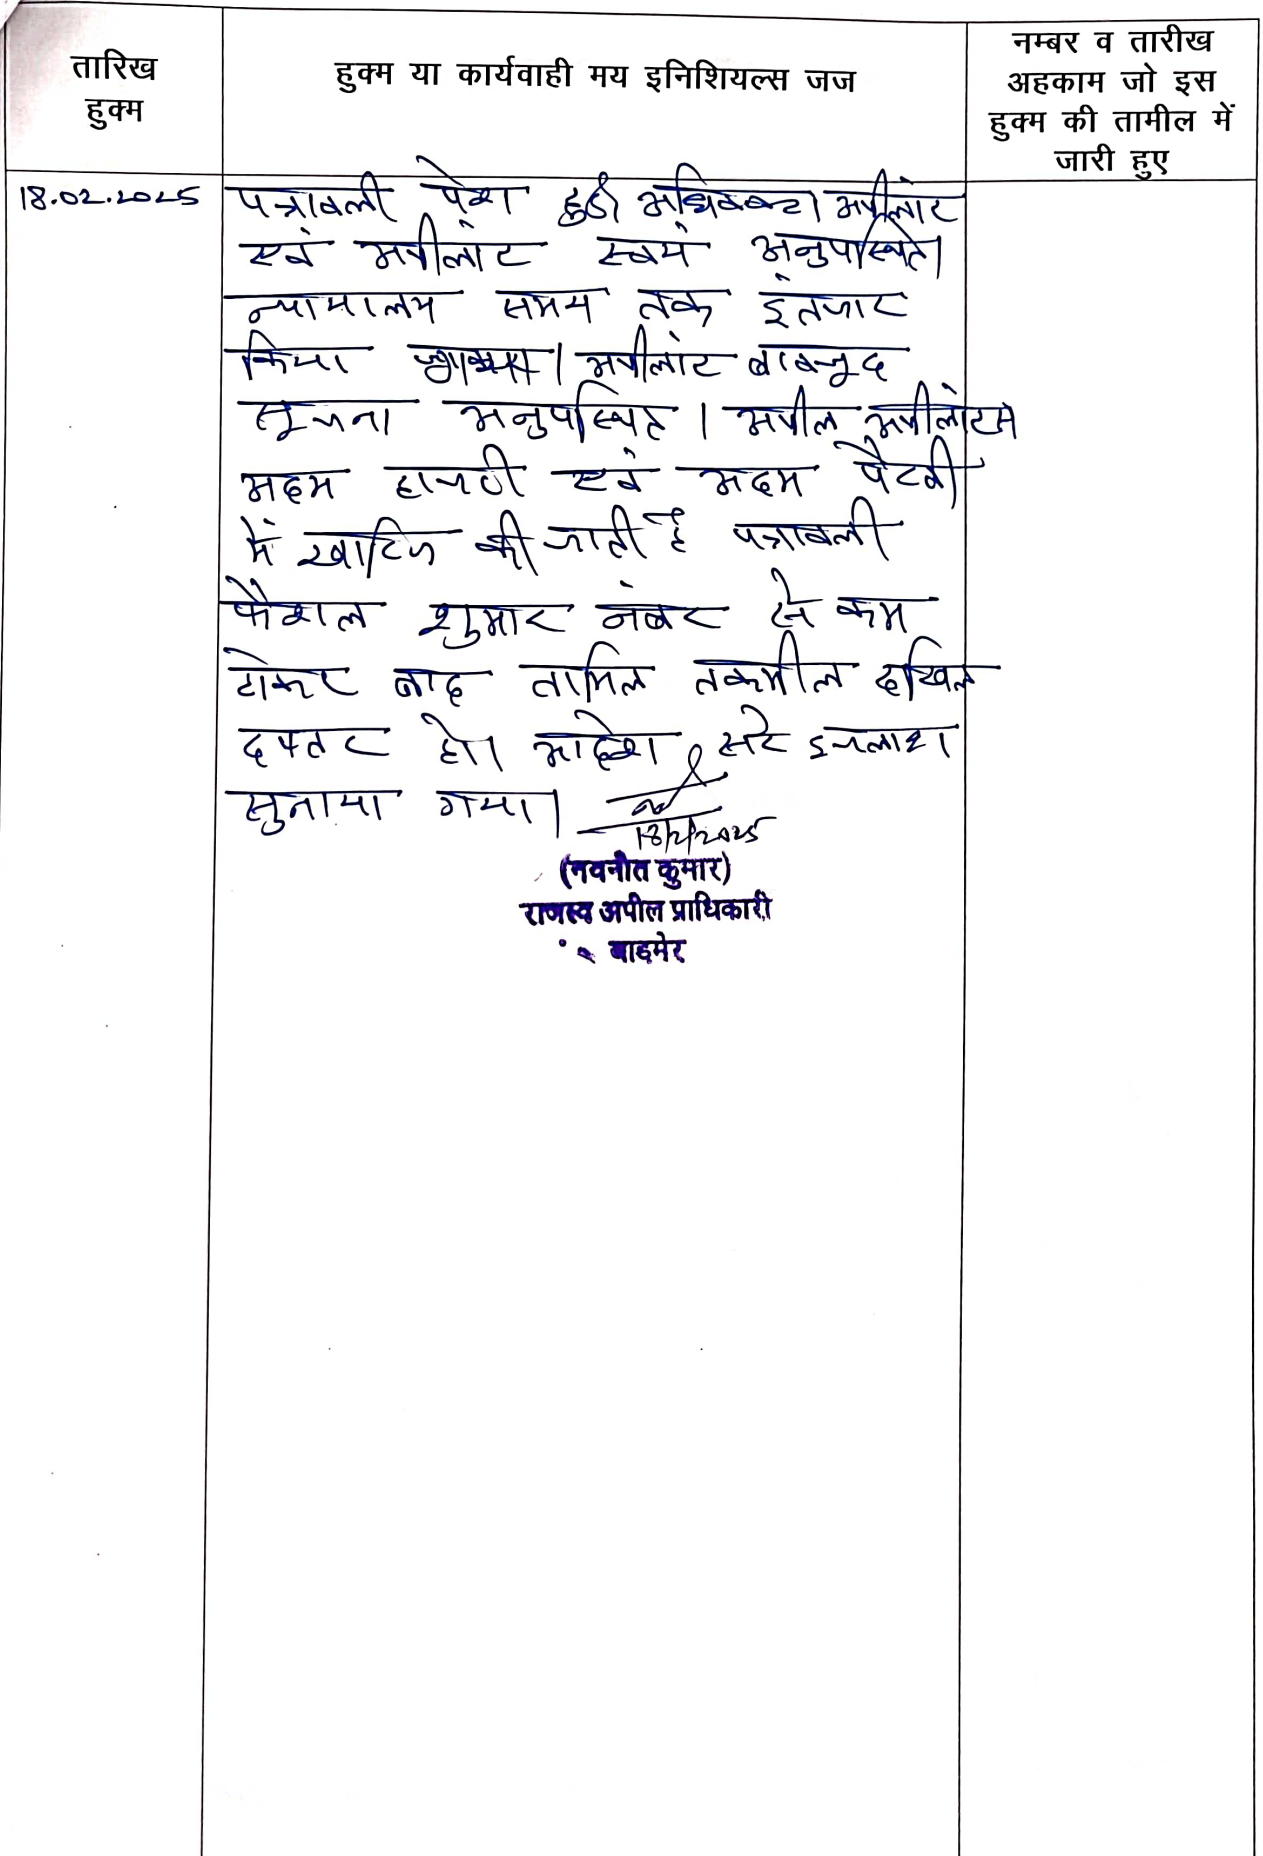 तारिख
हुक्म
हुक्म या कार्यवाही मय इनिशियल्स जज
नम्बर व तारीख
अहकाम जो इस
हुक्म की तामील में
जारी हुए
18.02.2025
पत्रावली पेश हुई। अधिवक्ता अपीलांट
एवं अपीलांट स्वयं अनुपस्थित।
न्यायालय समय तक इंतजार
किया गया। अपीलांट बावजूद
सूचना अनुपस्थित। अपील अपीलांटस
अदम हाजरी एवं अदम पैरवी
में खारिज की जाती है पत्रावली
फैशल शुमार नंबर से कम
होकर बाद तामिल तकमील दाखिल
दफ्तर हो। आदेश सरे इजलाश
सुनाया गया।
18/2/2025
(नवनीत कुमार)
राजस्व अपील प्राधिकारी
बाड़मेर